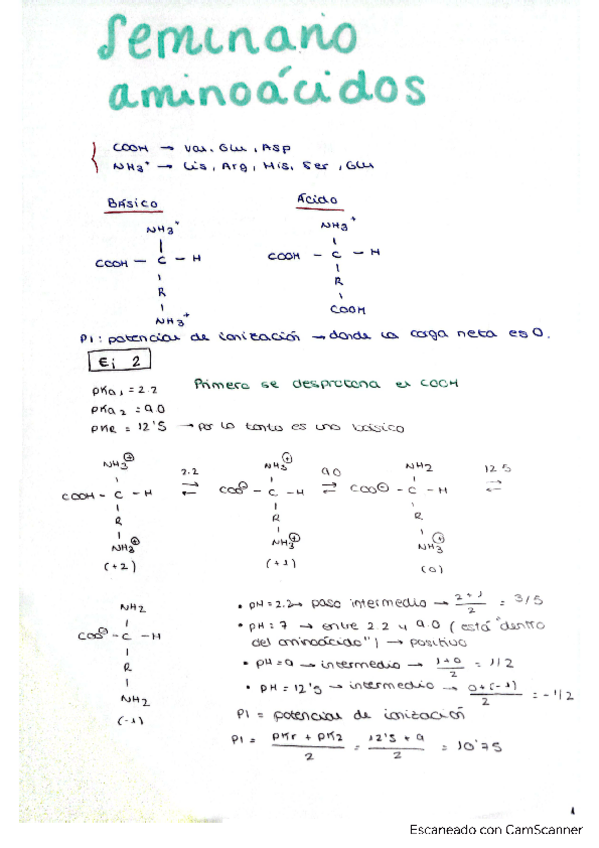 Seminario
aminoácidos
COOH → Val, Glu, Asp
NH3+ → Lis, Arg, His, Ser, Glu
Básico
Ácido
NH3+
COOH — C — H
R
NH3+
NH3+
COOH — C — H
R
COOH
PI: potencial de ionización → donde la carga neta es 0.
Ej 2
pKa1 = 2.2 Primero se desprotona el COOH
pKa2 = 9.0
pKR = 12'5 → por lo tanto es uno básico
NH3⊕
COOH - C - H
R
NH3⊕
(+2)
2.2
⇌
NH3⊕
COO⊖ - C - H
R
NH3⊕
(+1)
9.0
⇌
NH2
COO⊖ - C - H
R
NH3⊕
(0)
12 5
⇌
NH2
COO⊖ - C - H
R
NH2
(-1)
• pH = 2.2 → paso intermedio → 2+1/2 = 3/5
• pH = 7 → entre 2.2 y 9.0 (está "dentro
del aminoácido") → positivo
• pH = 9 → intermedio → 1+0/2 = 1/2
• pH = 12'5 → intermedio → 0+(-1)/2 = -1/2
PI = potencial de ionización
PI = pKr + pK2/2 = 12'5 + 9/2 = 10'75
1
Escaneado con CamScanner